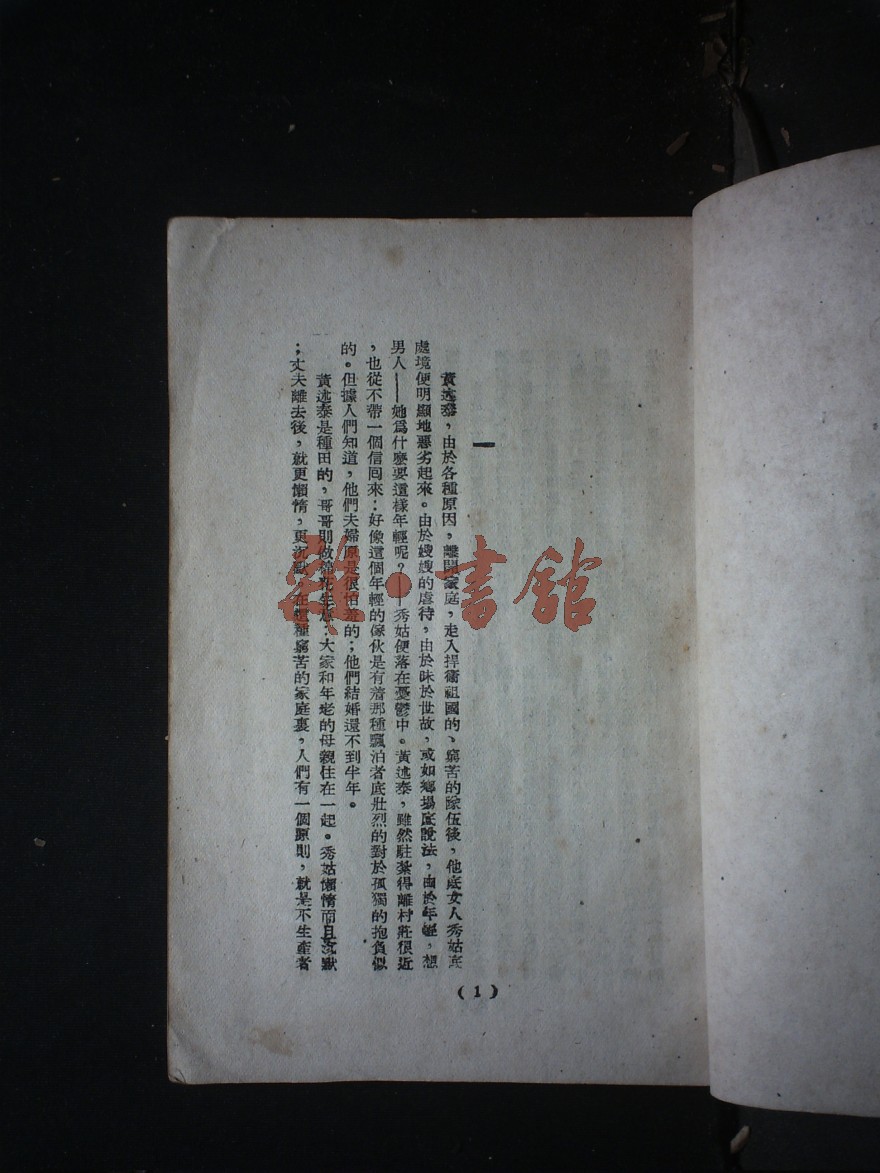 一
黃述泰,由於各種原因,離開家庭,走入捍衞祖國的、窮苦的隊伍後,他底女人秀姑底
處境便明顯地惡劣起來。由於嫂嫂的虐待,由於昧於世故,或如鄉場底說法,由於年輕,想
男人——她爲什麼要這樣年輕呢?——秀姑便落在憂鬱中。黃述泰,雖然駐紮得離村莊很近
,也從不帶一個信囘來;好像這個年輕的傢伙是有着那種飄泊者底壯烈的對於孤獨的抱負似
的。但據人們知道,他們夫婦原是很怕羞的;他們結婚還不到半年。
黃述泰是種田的,哥哥則做棉花生意;大家和年老的母親住在一起。秀姑懶惰而且沉默
;丈夫離去後,就更懶惰,更沉默。在這種窮苦的家庭裏,人們有一個原則,就是不生產者
(1)
歡·書館